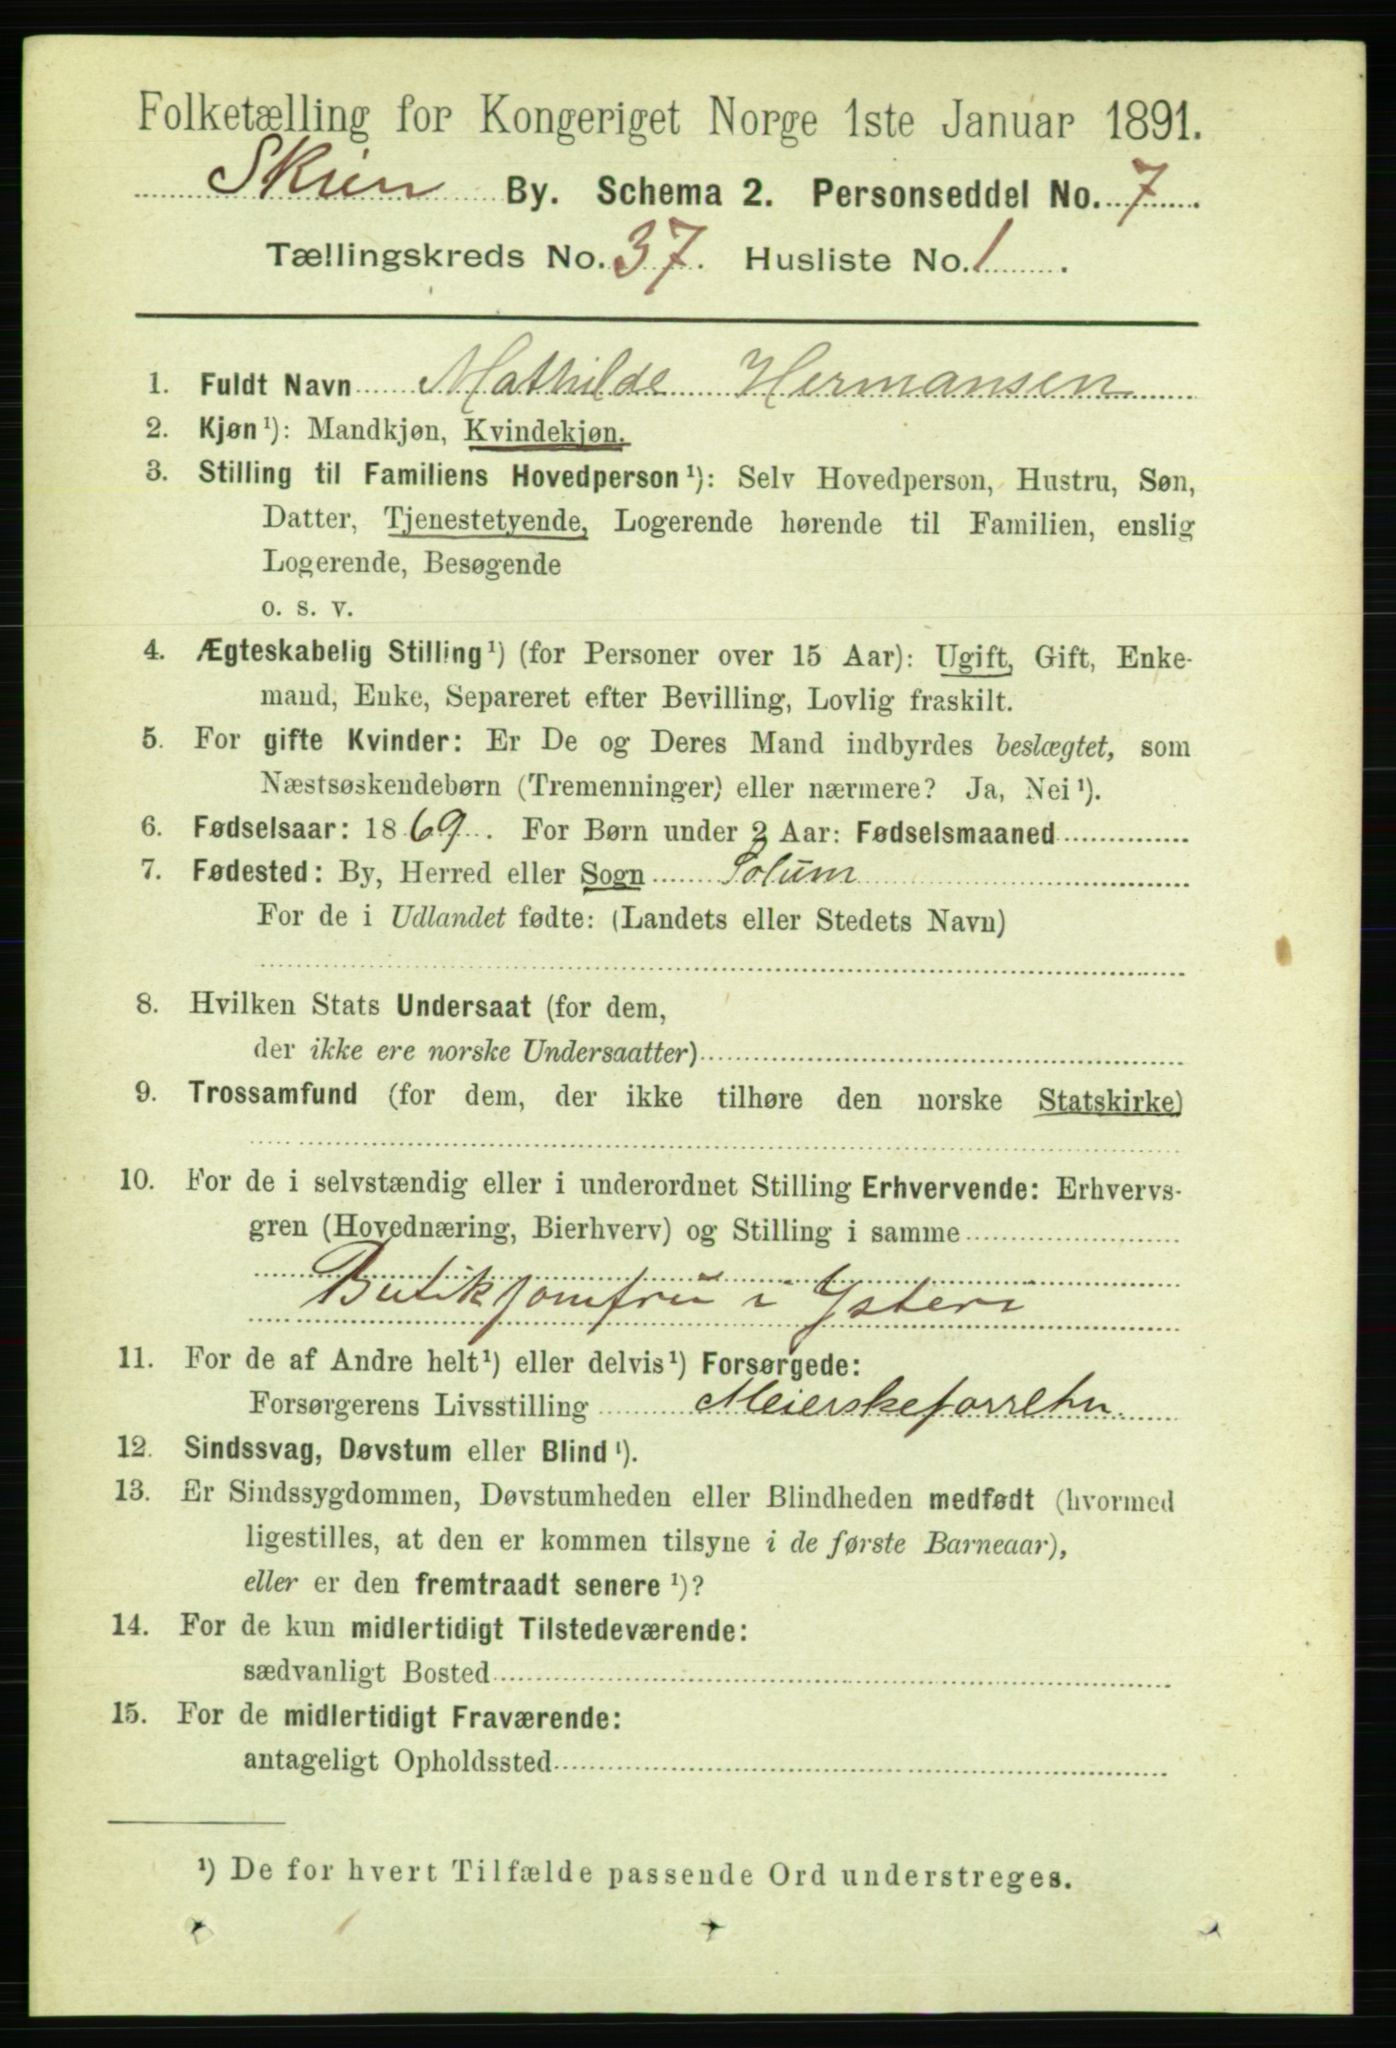 Folketælling for Kongeriget Norge 1ste Januar 1891.
Skien By. Schema 2. Personseddel No. 7.
Tællingskreds No. 37. Husliste No. 1.
1. Fuldt Navn Mathilde Hermansen
2. Kjøn¹): Mandkjøn, Kvindekjøn.
3. Stilling til Familiens Hovedperson¹): Selv Hovedperson, Hustru, Søn,
Datter, Tjenestetyende, Logerende hørende til Familien, enslig
Logerende, Besøgende
o. s. v.
4. Ægteskabelig Stilling¹) (for Personer over 15 Aar): Ugift, Gift, Enke-
mand, Enke, Separeret efter Bevilling, Lovlig fraskilt.
5. For gifte Kvinder: Er De og Deres Mand indbyrdes beslægtet, som
Næstsøskendebørn (Tremenninger) eller nærmere? Ja, Nei¹).
6. Fødselsaar: 1869. For Børn under 2 Aar: Fødselsmaaned
7. Fødested: By, Herred eller Sogn Solum
For de i Udlandet fødte: (Landets eller Stedets Navn)
8. Hvilken Stats Undersaat (for dem,
der ikke ere norske Undersaatter)
9. Trossamfund (for dem, der ikke tilhøre den norske Statskirke)
10. For de i selvstændig eller i underordnet Stilling Erhvervende: Erhvervs-
gren (Hovednæring, Bierhverv) og Stilling i samme
Butikjomfru i Ysteri
11. For de af Andre helt¹) eller delvis¹) Forsørgede:
Forsørgerens Livsstilling
12. Sindssvag, Døvstum eller Blind¹).
13. Er Sindssygdommen, Døvstumheden eller Blindheden medfødt (hvormed
ligestilles, at den er kommen tilsyne i de første Barneaar),
eller er den fremtraadt senere¹)?
14. For de kun midlertidigt Tilstedeværende:
sædvanligt Bosted
15. For de midlertidigt Fraværende:
antageligt Opholdssted
¹) De for hvert Tilfælde passende Ord understreges.